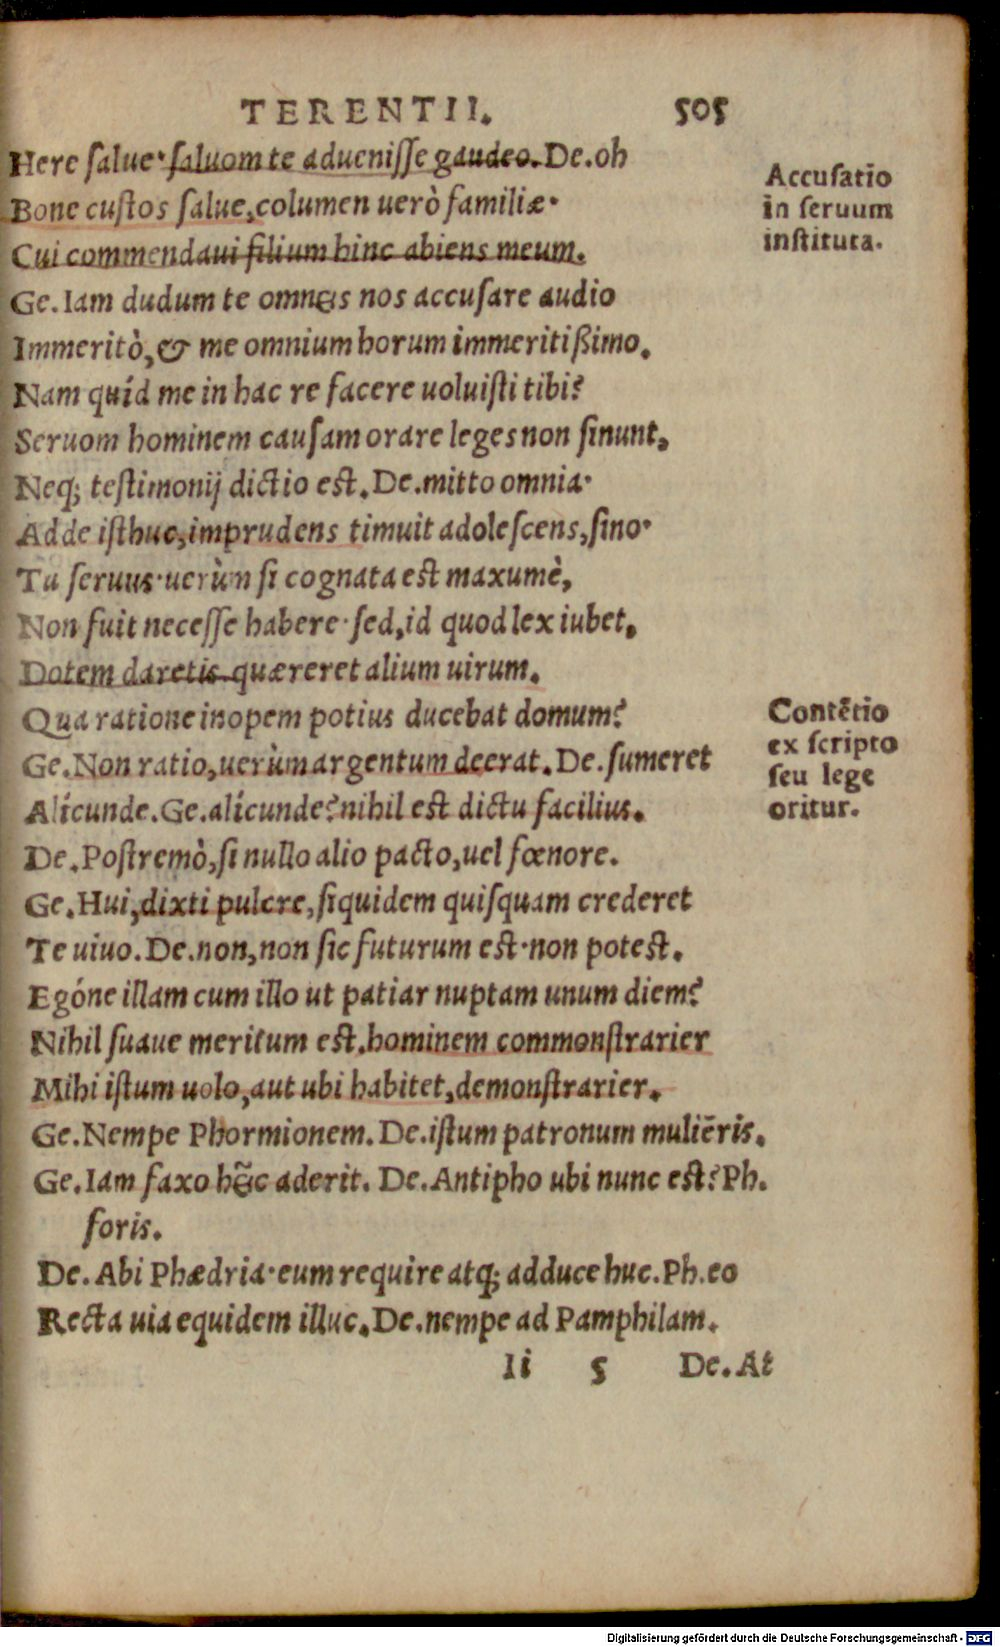 TERENTII. 505
Here salue· saluom te aduenisse gaudeo. De. oh
Bone custos salue, columen uerò familiæ·
Cui commendaui filium hinc abiens meum.
Accusatiō
in seruum
instituta.
Ge. Iam dudum te omneis nos accusare audio
Immeritò, & me omnium horum immeritißimo.
Nam quíd me in hac re facere uoluisti tibi?
Seruom hominem causam orare leges non sinunt.
Neq; testimonij dictio est. De. mitto omnia·
Adde isthuc, imprudens timuit adolescens, sino·
Tu seruus· uerùm si cognata est maxumè,
Non fuit necesse habere· sed, id quod lex iubet,
Dotem daretis· quæreret alium uirum.
Qua ratione inopem potius ducebat domum?
Ge. Non ratio, uerùm argentum deerat. De. sumeret
Alícunde. Ge. alícunde? nihil est dictu facilius.
Contētio
ex scripto
seu lege
oritur.
De. Postremò, si nullo alio pacto, uel fœnore.
Ge. Hui, dixti pulcre, siquidem quisquam crederet
Te uiuo. De. non, non sic futurum est· non potest.
Egóne illam cum illo ut patiar nuptam unum diem?
Nihil suaue meritum est. hominem commonstrarier
Mihi istum uolo, aut ubi habitet, demonstrarier.
Ge. Nempe Phormionem. De. istum patronum muliēris.
Ge. Iam faxo hĕic aderit. De. Antipho ubi nunc est? Ph.
foris.
De. Abi Phædria· eum require atq; adduce huc. Ph. eo
Recta uia equidem illuc. De. nempe ad Pamphilam.
Ii 5 De. At
Digitalisierung gefördert durch die Deutsche Forschungsgemeinschaft - DFG